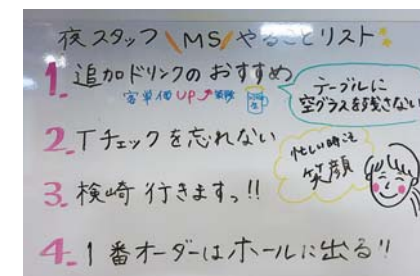 夜スタッフ\MS/やることリスト
1. 追加ドリンクのおすすめ
客単価UP↗
テーブルに
空グラスを残さない
2. Tチェックを忘れない
忙しい時こそ
笑顔
3. 検崎行きますっ!!
4. 1番オーダーはホールに出る!!